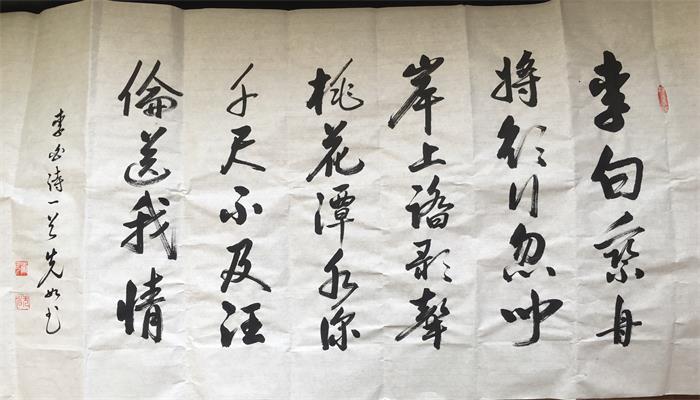 李白乘舟
将欲行忽闻
岸上踏歌聲
桃花潭水深
千尺不及汪
倫送我情
李白诗一首 先如书